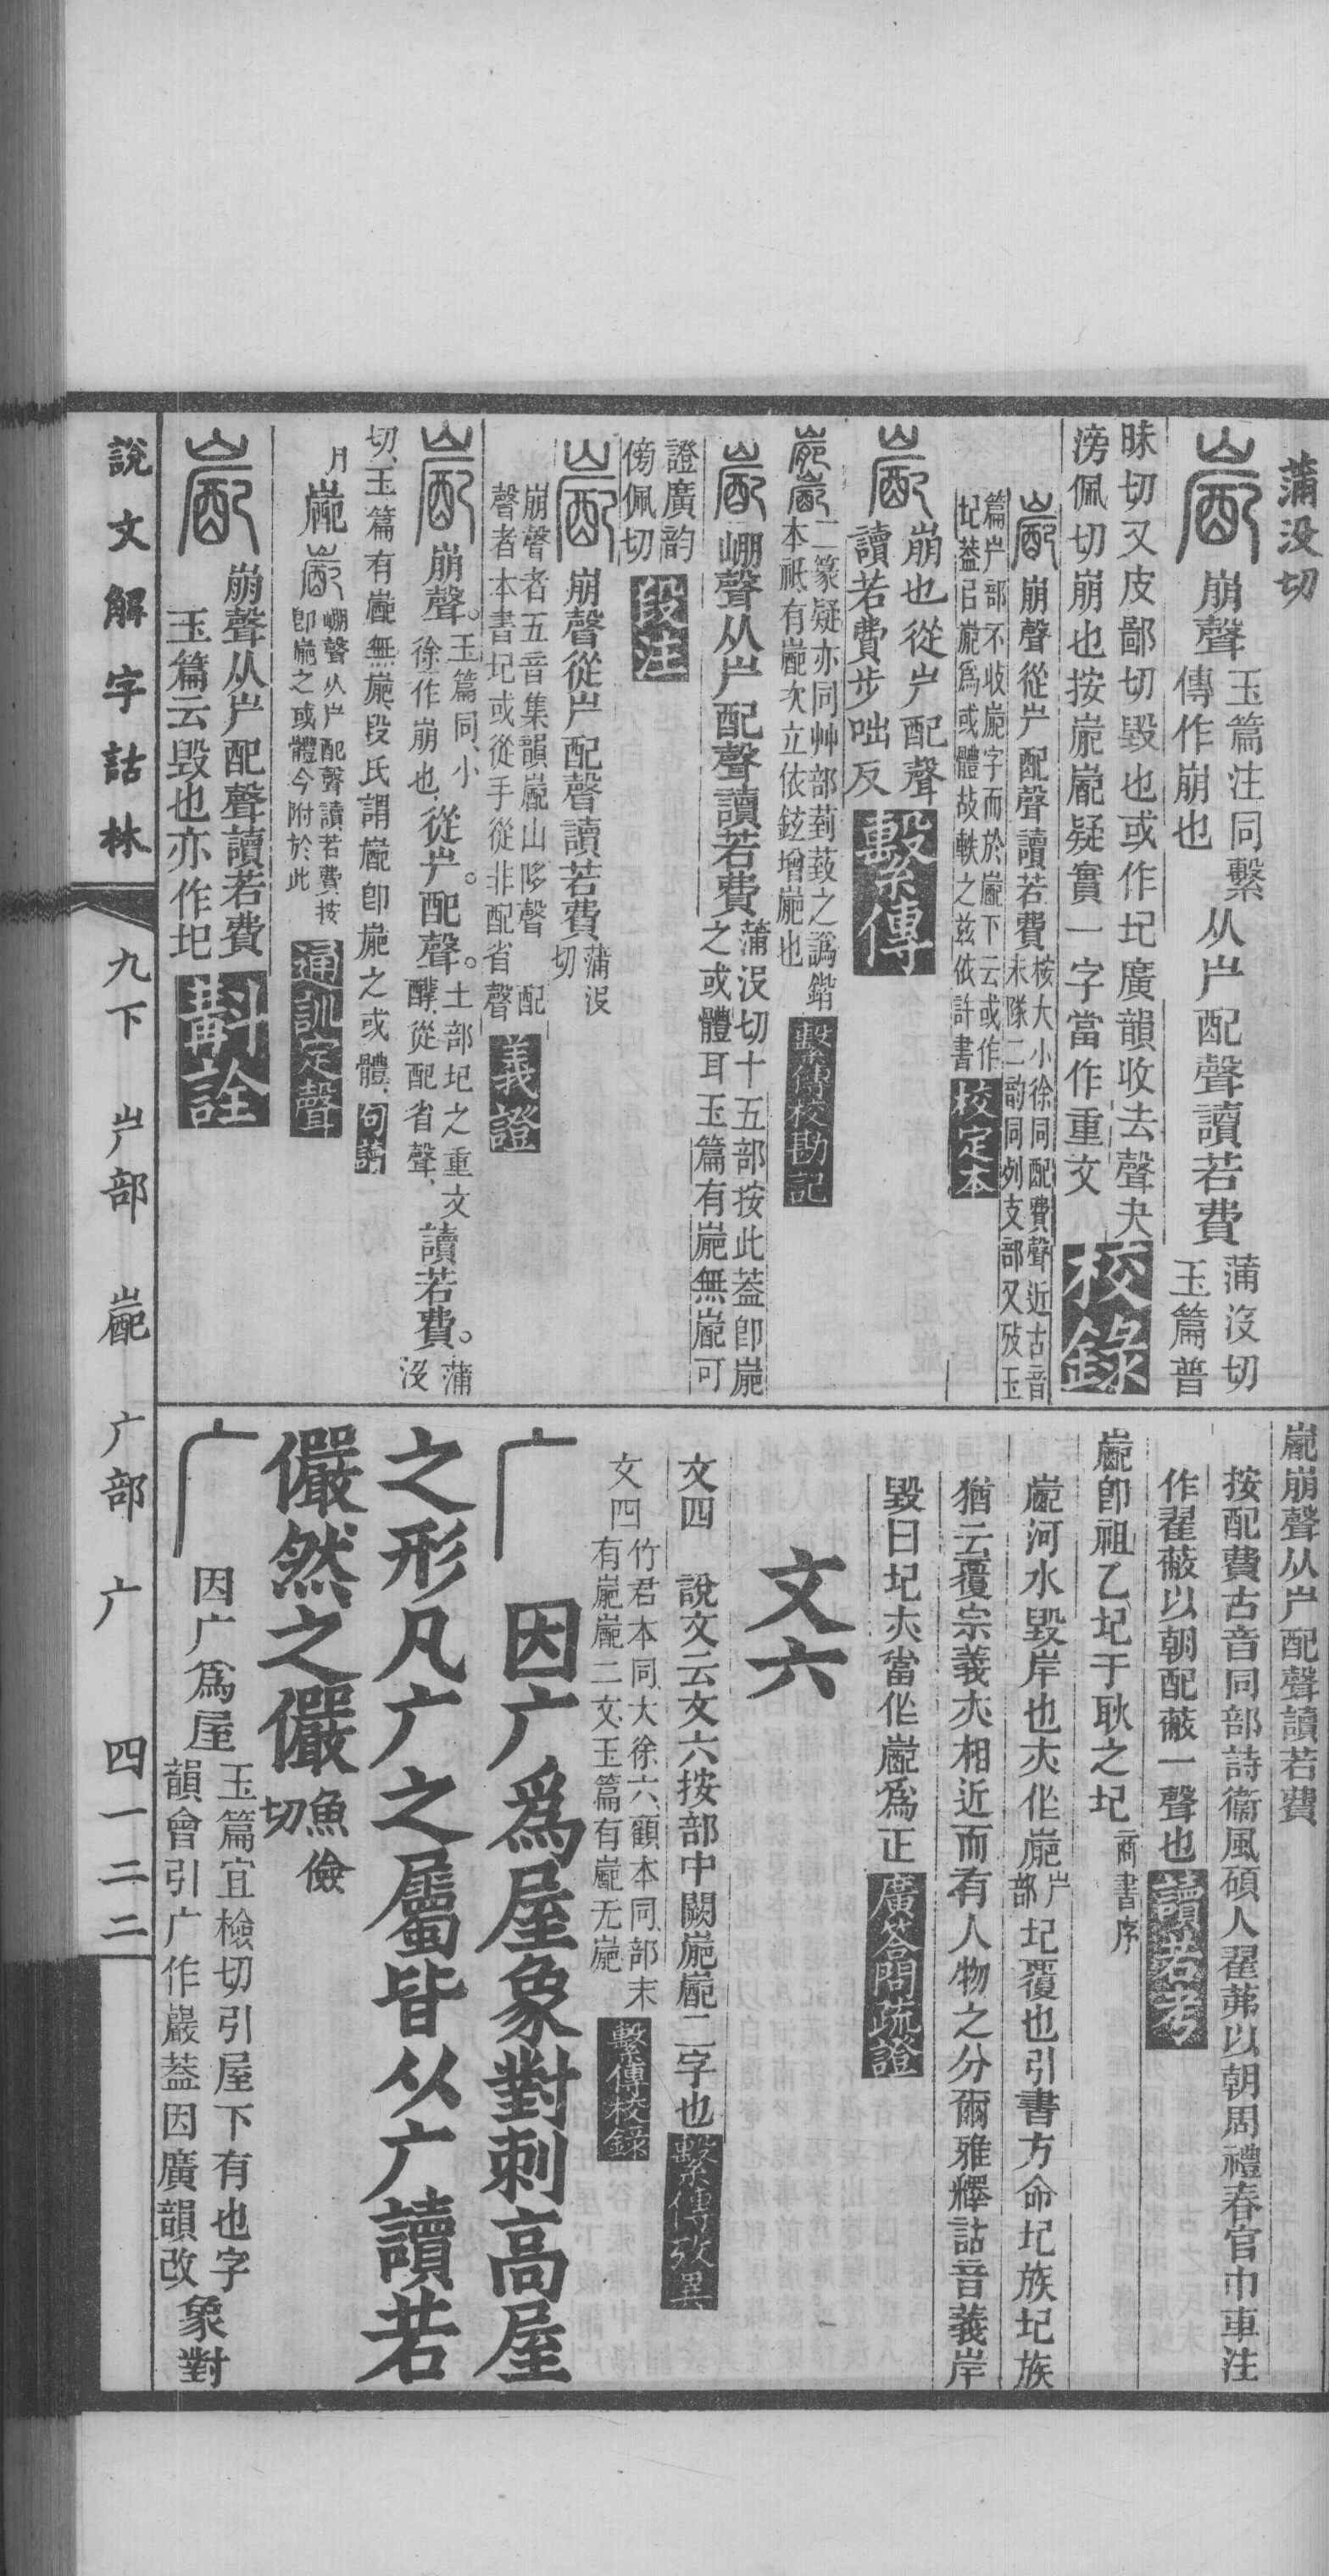 蒲没切
崩聲玉篇注同繫傳作崩也从屵配聲讀若費蒲没切玉篇普
昧切又皮鄙切毀也或作圮廣韻收去聲夬
滂佩切崩也按嶏㠥疑實一字當作重文校錄
崩聲從屵配聲讀若費桉大小徐同配費聲近古音未隊二韵同列支部又攷玉
篇屵部不收嶏字而於㠥下云或作圮葢㠯嶏爲或體故軼之茲依許書校定本
崩也從屵配聲
讀若費步咄反繫傳
二篆疑亦同艸部菿䓸之譌鍇本祇有㠥次立依鉉增嶏也繫傳校勘記
㠥崩聲从屵配聲讀若費蒲没切十五部按此葢卽嶏之或體耳玉篇有嶏無㠥可
證廣韵傍佩切段注
崩聲從屵配聲讀若費蒲没切
崩聲者五音集韻㠥山哆聲配聲者本書圮或從手從非配省聲義證
崩聲。玉篇同、小徐作崩也、從屵。配聲。土部圮之重文酵、從配省聲、讀若費。蒲没
切、玉篇有㠥無嶏、段氏謂㠥卽嶏之或體、句讀
嶏㠥崩聲从屵配聲讀若費按卽嶏之或體今附於此通訓定聲
崩聲从屵配聲讀若費
玉篇云毀也亦作圮斠詮
㠥崩聲从屵配聲讀若費
按配費古音同部詩衞風碩人翟茀以朝周禮春官巾車注
作翟蔽以朝配蔽一聲也讀若考
㠥卽祖乙圮于耿之圮商書序
㠥河水毀岸也亦作嶏屵部圮覆也引書方命圮族圮族
猶云覆宗義亦相近而有人物之分爾雅釋詁音義岸
毀曰圮亦當作㠥爲正廣荅問疏證
文六
文四　說文云文六按部中闕嶏㠥二字也繫傳攷異
文四竹君本同、大徐六顧本同、部末有嶏㠥二文、玉篇有㠥无嶏繫傳校錄
广因广爲屋象對刺高屋
之形凡广之屬皆从广讀若
儼然之儼魚儉切
广因广爲屋玉篇宜檢切引屋下有也字韻會引广作巖葢因廣韻改象對
說文解字詁林　九下　屵部　㠥　广部　广　四一二二